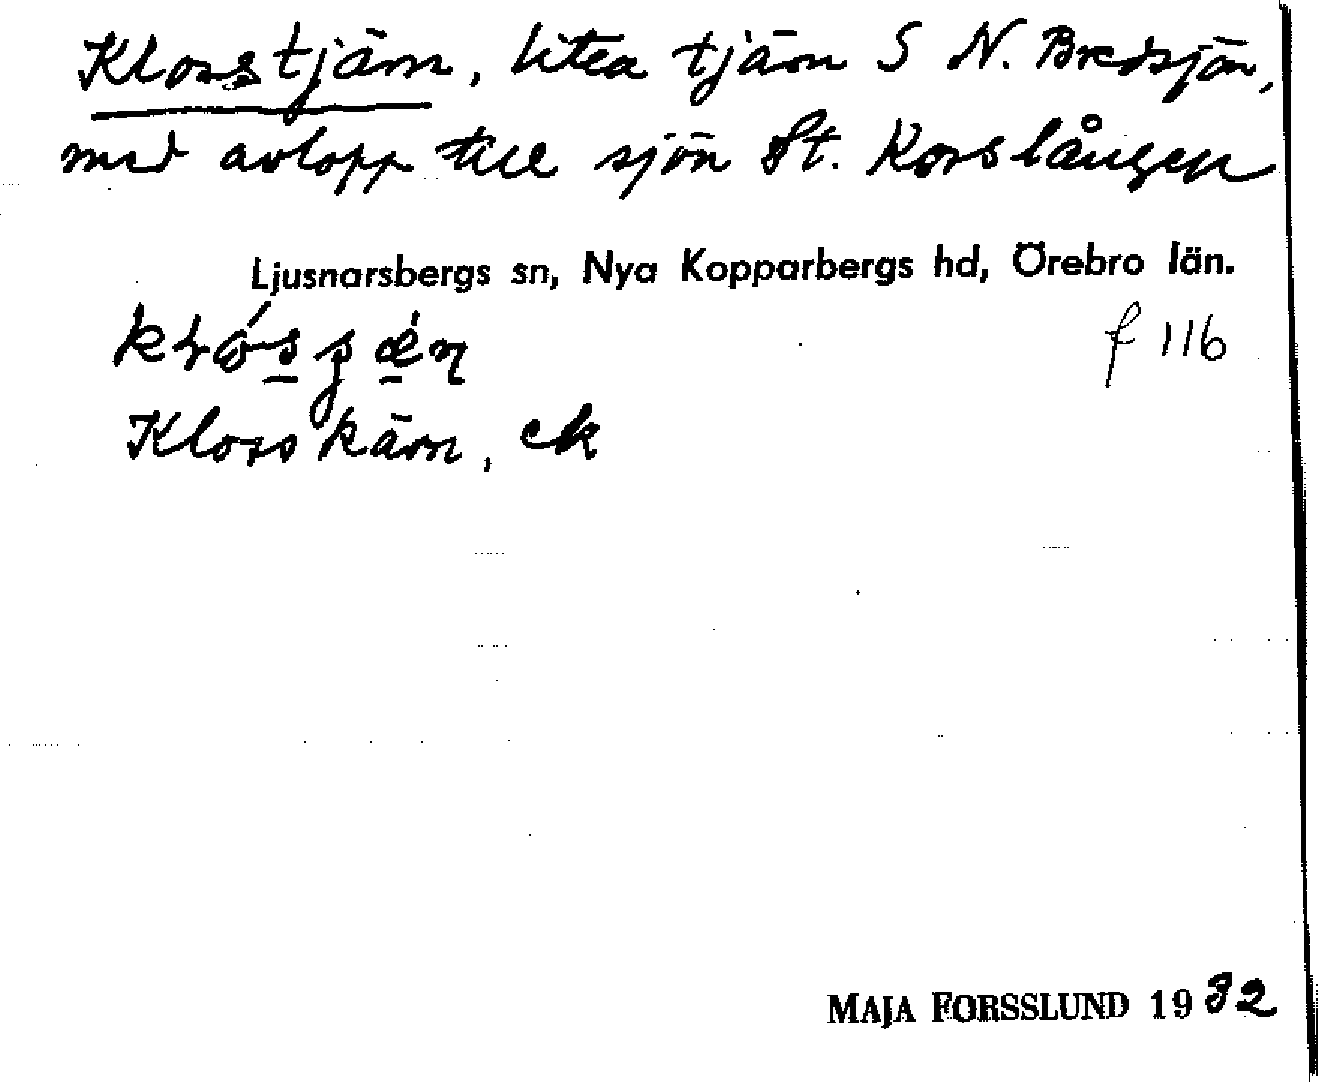 Klosstjärn, liten tjärn S N. Bredsjön,
med avlopp till sjön St. Korslången
Ljusnarsbergs sn, Nya Kopparbergs hd, Örebro län.
f 116
Klosskärn, ek
MAJA FORSSLUND 1932